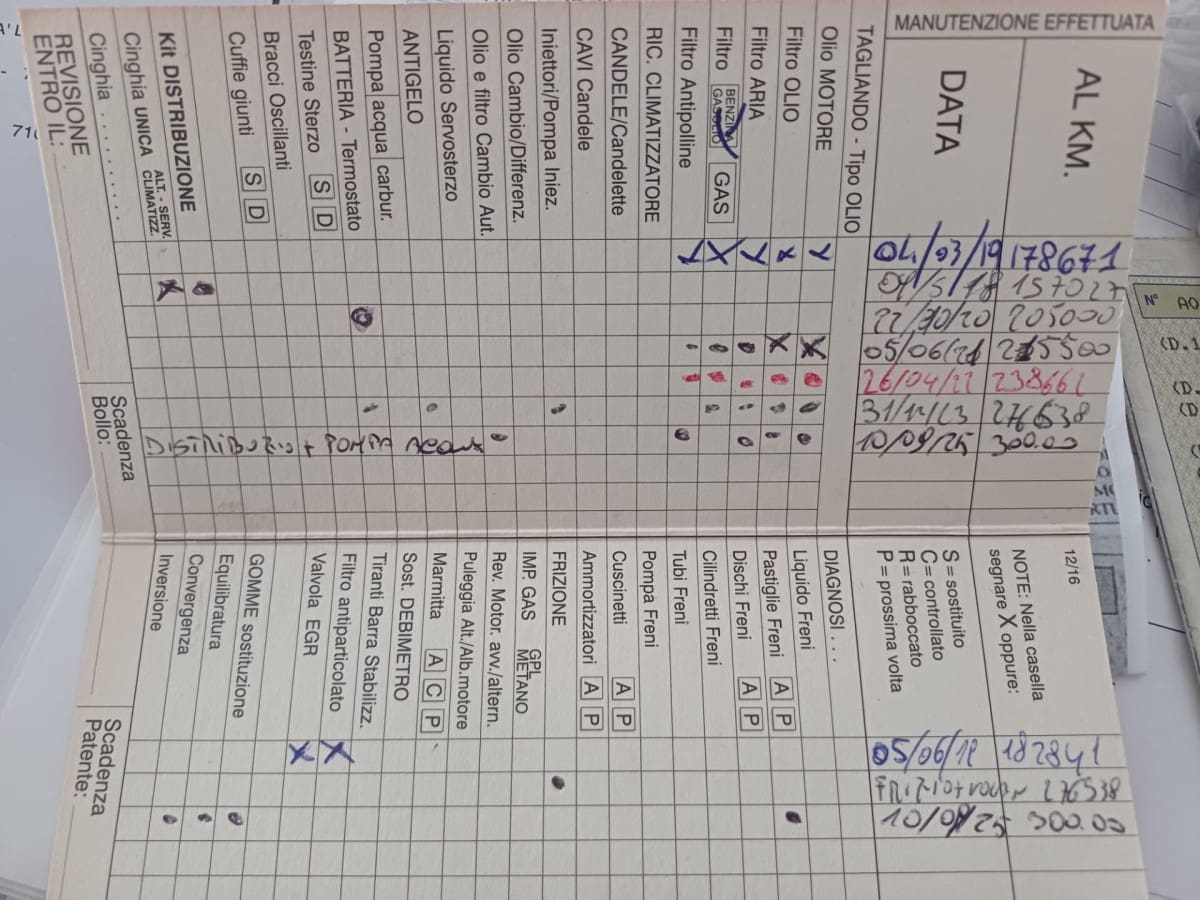 MANUTENZIONE EFFETTUATA
AL KM.
DATA
TAGLIANDO - Tipo OLIO
Olio MOTORE
Filtro OLIO
Filtro ARIA
Filtro BENZINA GASOLIO GAS
Filtro Antipolline
RIC. CLIMATIZZATORE
CANDELE/Candelette
CAVI Candele
Iniettori/Pompa Iniez.
Olio Cambio/Differenz.
Olio e filtro Cambio Aut.
Liquido Servosterzo
ANTIGELO
Pompa acqua carbur.
BATTERIA - Termostato
Testine Sterzo S D
Bracci Oscillanti
Cuffie giunti S D
Kit DISTRIBUZIONE
Cinghia UNICA ALT. - SERV. CLIMATIZZ.
Cinghia . . . . . . . . .
REVISIONE ENTRO IL:
Scadenza Bollo:
04/03/19 178671
157027
22/10/20 205000
05/06/21 215500
26/04/22 238662
276538
10/09/25 300.00
DISTRIBUZIO + POMPA
12/16
NOTE: Nella casella
segnare X oppure:
S = sostituito
C = controllato
R = rabboccato
P = prossima volta
DIAGNOSI . . .
Liquido Freni
Pastiglie Freni A P
Dischi Freni A P
Cilindretti Freni
Tubi Freni
Pompa Freni
Cuscinetti A P
Ammortizzatori A P
FRIZIONE
IMP. GAS GPL METANO
Rev. Motor. avv./altern.
Puleggia Alt./Alb.motore
Marmitta A C P
Sost. DEBIMETRO
Tiranti Barra Stabilizz.
Filtro antiparticolato
Valvola EGR
GOMME sostituzione
Equilibratura
Convergenza
Inversione
Scadenza Patente:
05/06/18 182841
276538
10/09/25 300.00
Nº A0